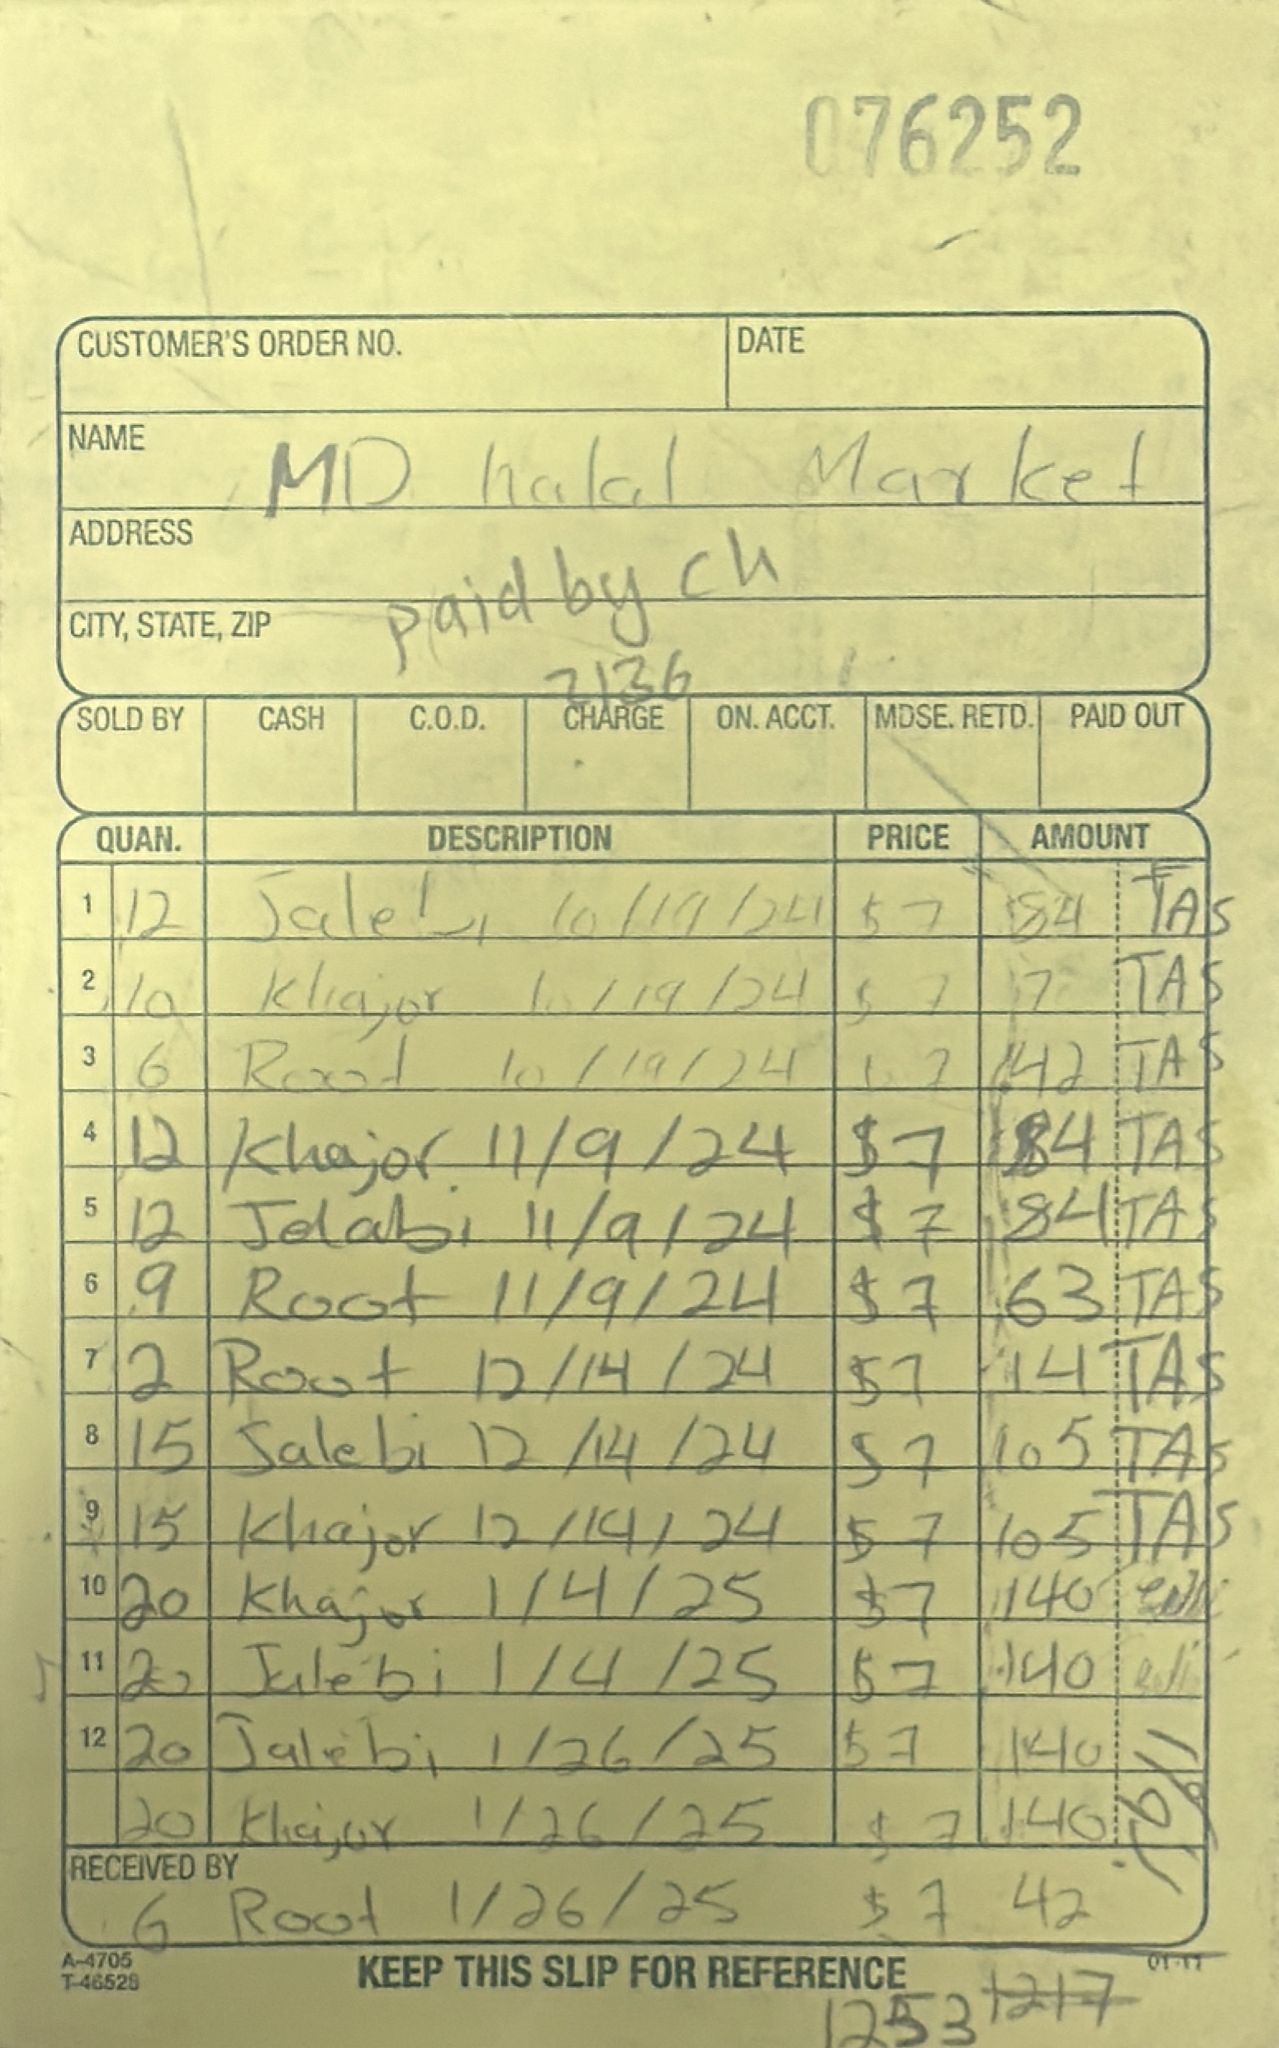 076252
CUSTOMER'S ORDER NO. DATE
NAME MD halal Market
ADDRESS
paid by ch
CITY, STATE, ZIP
2136
SOLD BY CASH C.O.D. CHARGE ON. ACCT. MDSE. RETD. PAID OUT
QUAN. DESCRIPTION PRICE AMOUNT
1 12 Jalebi 10/19/24 $7 84 TAS
2 10 Khajor 10/19/24 $7 7 TAS
3 6 Root 10/19/24 $7 42 TAS
4 12 Khajor 11/9/24 $7 84 TAS
5 12 Jelabi 11/9/24 $7 84 TAS
6 9 Root 11/9/24 $7 63 TAS
7 2 Root 12/14/24 $7 14 TAS
8 15 Jalebi 12/14/24 $7 105 TAS
9 15 Khajor 12/14/24 $7 105 TAS
10 20 Khajor 1/4/25 $7 140
11 20 Jalebi 1/4/25 $7 140
12 20 Jalebi 1/26/25 $7 140
20 Khajor 1/26/25 $7 140
RECEIVED BY
6 Root 1/26/25 $7 42
A-4705
T-46528
KEEP THIS SLIP FOR REFERENCE
01-17
1253 1217